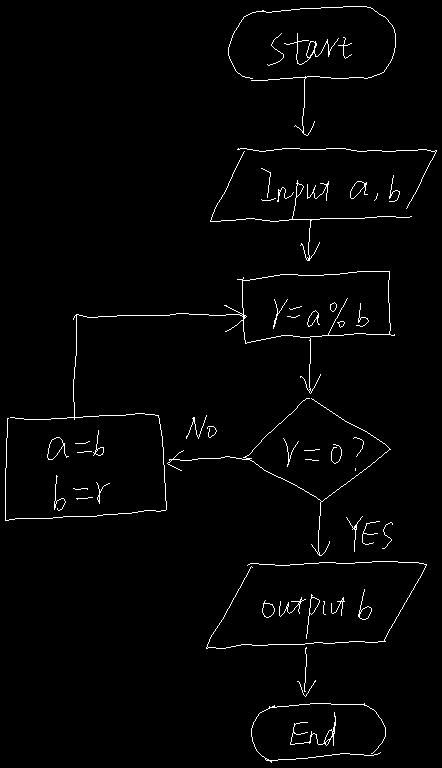 Start
Input a, b
r=a%b
r=0?
No
a=b
b=r
YES
output b
End